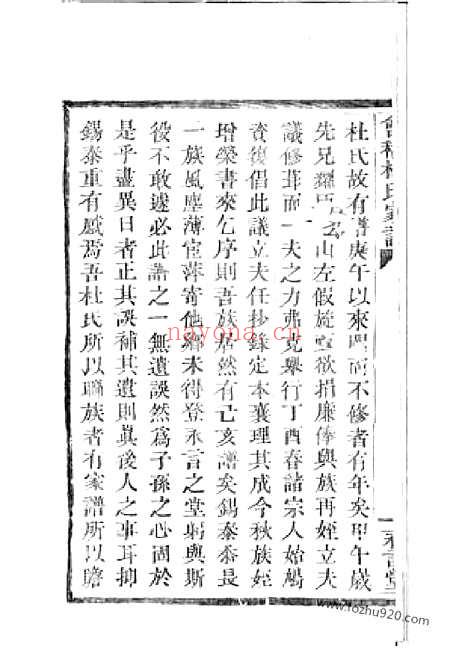 會稽杜氏家譜
一 永言堂
杜氏故有譜庚午以來閒而不修者有年矣甲午歲
先兄 山左假旋 欲捐廉俸與族再姪立夫
議修葺而一夫之力弗克舉行丁酉春諸宗人始醵
資復倡此議立夫任抄錄定本襄理其成今秋族姪
增榮書來乞序則吾族居然有亡亥譜矣錫泰忝長
一族風塵薄宦萍寄他鄉未得登永言之堂躬與斯
役不敢遽必此譜之一無遺誤然爲子孫之心固於
是乎盡異日者正其誤補其遺則眞後人之事耳抑
錫泰重有感焉吾杜氏所以聯族者有家譜所以贍
nayona.cn
www.fozhu920.com